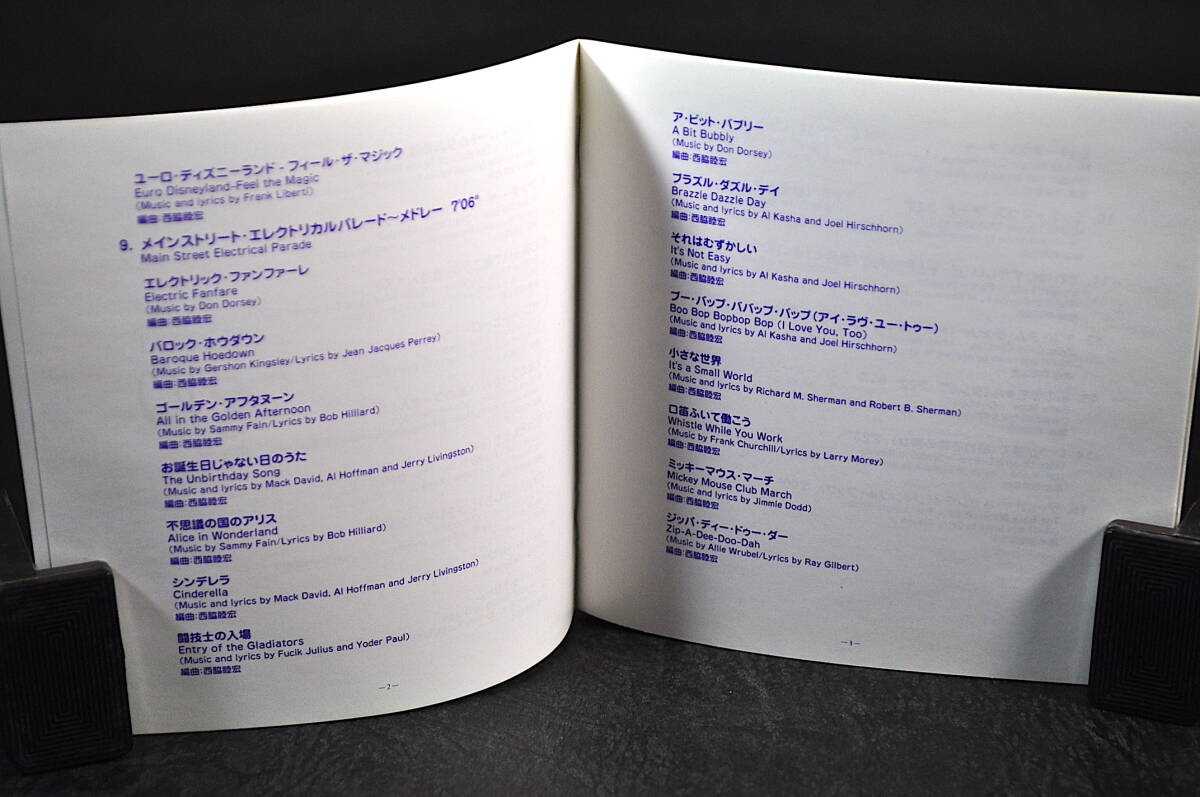 ユーロ・ディズニーランド - フィール・ザ・マジック
Euro Disneyland-Feel the Magic
(Music and lyrics by Frank Liberti)
編曲:西脇睦宏
9. メインストリート・エレクトリカルパレード〜メドレー 7'06"
Main Street Electrical Parade
エレクトリック・ファンファーレ
Electric Fanfare
(Music by Don Dorsey)
編曲:西脇睦宏
バロック・ホウダウン
Baroque Hoedown
(Music by Gershon Kingsley/Lyrics by Jean Jacques Perrey)
編曲:西脇睦宏
ゴールデン・アフタヌーン
All in the Golden Afternoon
(Music by Sammy Fain/Lyrics by Bob Hilliard)
編曲:西脇睦宏
お誕生日じゃない日のうた
The Unbirthday Song
(Music and lyrics by Mack David, Al Hoffman and Jerry Livingston)
編曲:西脇睦宏
不思議の国のアリス
Alice in Wonderland
(Music by Sammy Fain/Lyrics by Bob Hilliard)
編曲:西脇睦宏
シンデレラ
Cinderella
(Music and lyrics by Mack David, Al Hoffman and Jerry Livingston)
編曲:西脇睦宏
闘技士の入場
Entry of the Gladiators
(Music and lyrics by Fucik Julius and Yoder Paul)
編曲:西脇睦宏
—2—
ア・ビット・バブリー
A Bit Bubbly
(Music by Don Dorsey)
編曲:西脇睦宏
ブラズル・ダズル・デイ
Brazzle Dazzle Day
(Music and lyrics by Al Kasha and Joel Hirschhorn)
編曲:西脇睦宏
それはむずかしい
It's Not Easy
(Music and lyrics by Al Kasha and Joel Hirschhorn)
編曲:西脇睦宏
ブー・バップ・ババップ・バップ(アイ・ラヴ・ユー・トゥー)
Boo Bop Bopbop Bop (I Love You, Too)
(Music and lyrics by Al Kasha and Joel Hirschhorn)
編曲:西脇睦宏
小さな世界
It's a Small World
(Music and lyrics by Richard M. Sherman and Robert B. Sherman)
編曲:西脇睦宏
口笛ふいて働こう
Whistle While You Work
(Music by Frank Churchill/Lyrics by Larry Morey)
編曲:西脇睦宏
ミッキーマウス・マーチ
Mickey Mouse Club March
(Music and lyrics by Jimmie Dodd)
編曲:西脇睦宏
ジッパ・ディー・ドゥー・ダー
Zip-A-Dee-Doo-Dah
(Music by Allie Wrubel/Lyrics by Ray Gilbert)
編曲:西脇睦宏